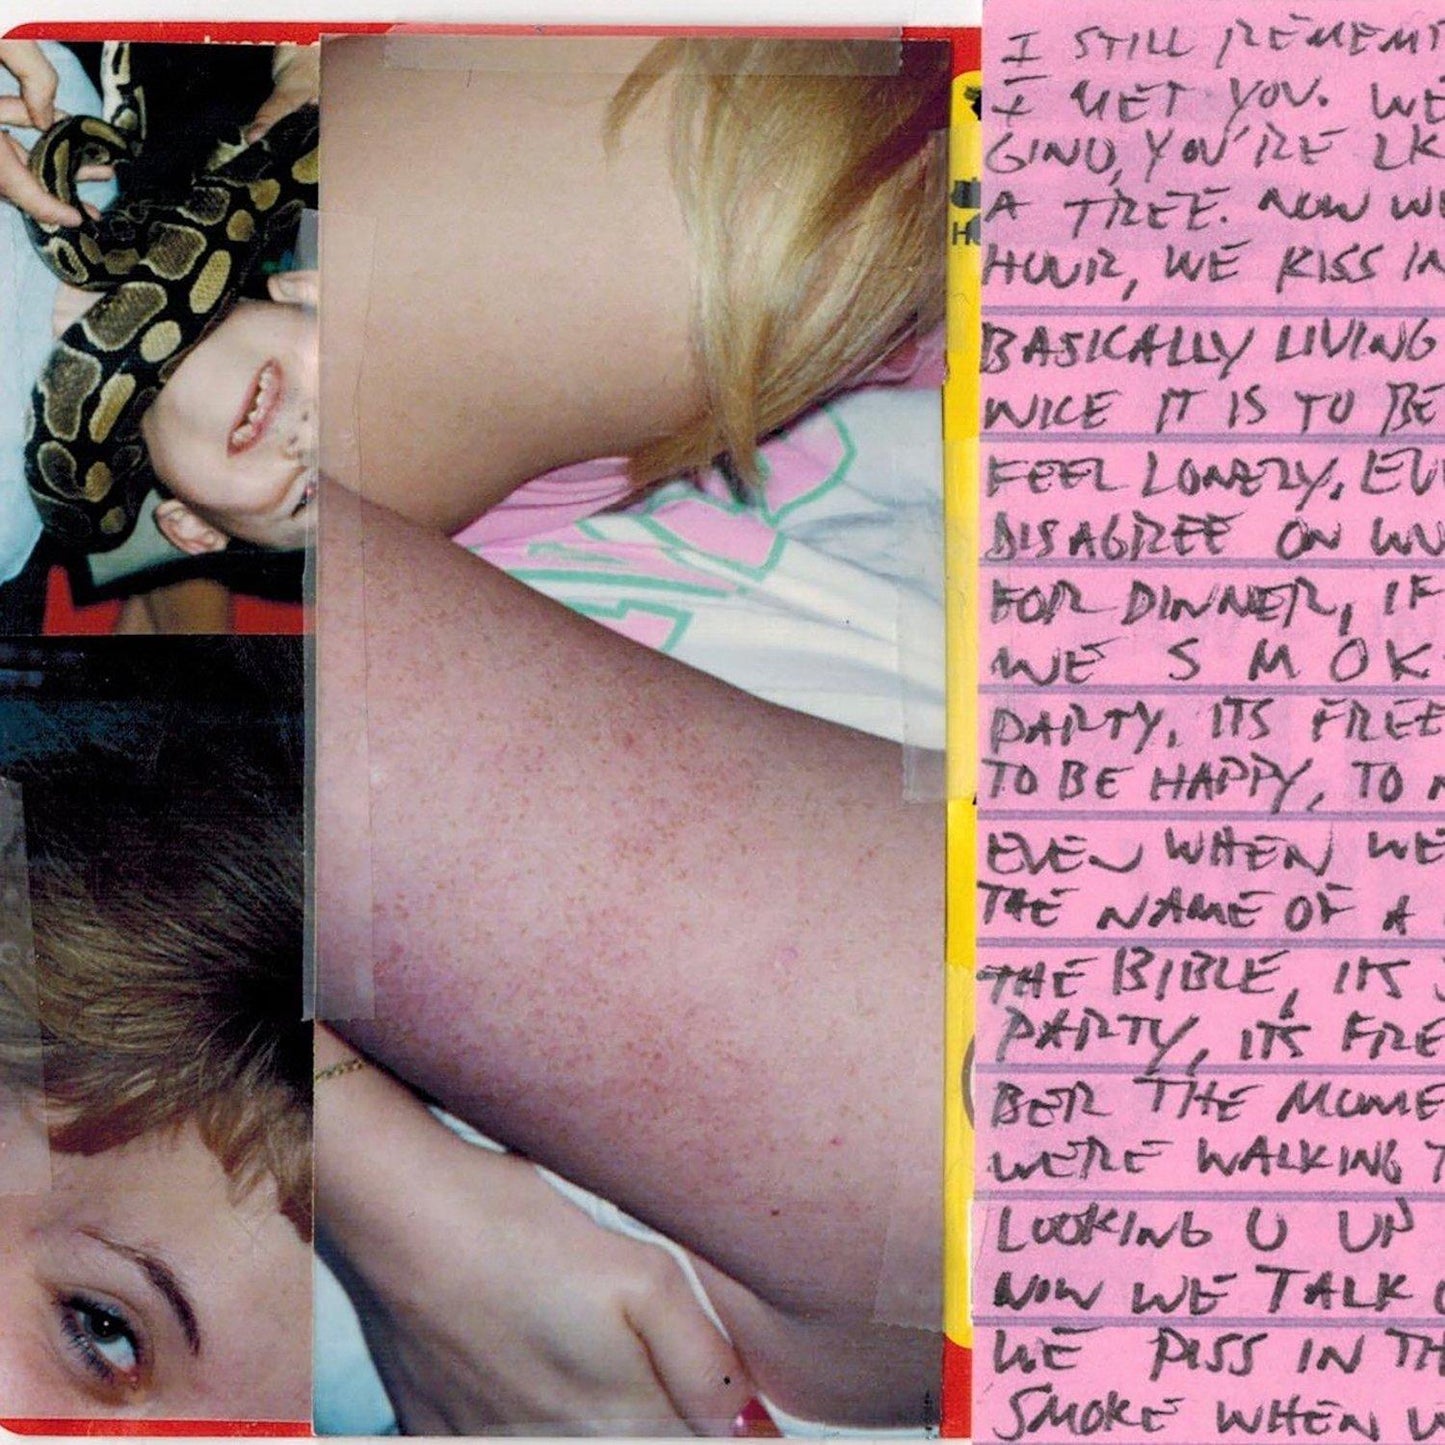 I STILL REMEM
I MET YOU. WE
GINO, YOU'RE LK
A TREE. NOW WE
HOUR, WE KISS IN
BASICALLY LIVING
NICE IT IS TO BE
FEEL LONELY, EV
DISAGREE ON WH
FOR DINNER, IF
WE SMOK
PARTY, ITS FREE
TO BE HAPPY, TO
EVEN WHEN WE
THE NAME OF A
THE BIBLE, ITS
PARTY, ITS FRE
BER THE MOME
WE'RE WALKING T
LOOKING U UP
NOW WE TALK
WE PISS IN TH
SMOKE WHEN W